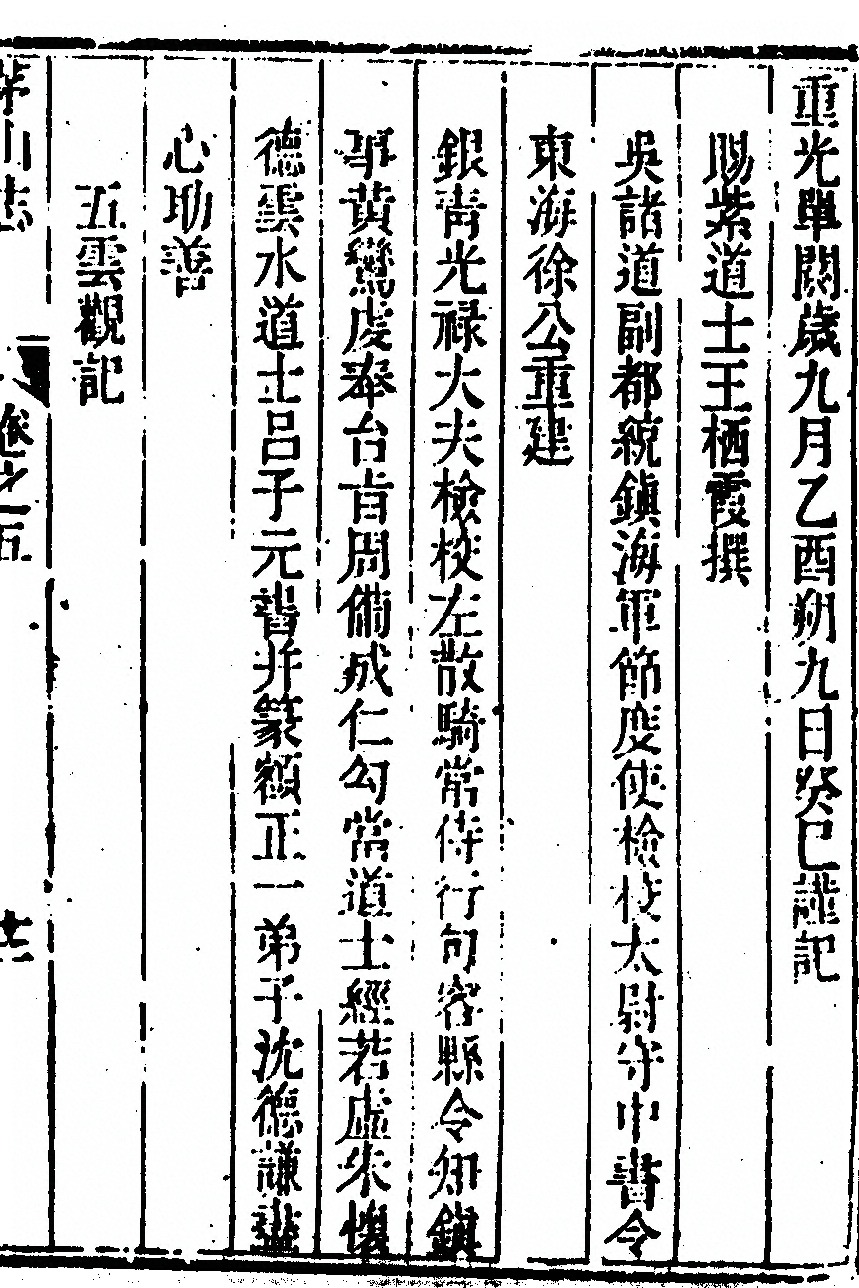 重光單閼歲九月乙酉朔九日癸巳謹記
賜紫道士王栖霞撰
吳諸道副都統鎮海軍節度使檢校太尉守中書令
東海徐公重建
銀青光祿大夫檢校左散騎常侍行句容縣令知鎮
事黃鸞虔奉台旨周備成仁勾當道士經若虛朱懷
德雲水道士呂子元書并篆額正一弟子沈德謙盡
心助善
五雲觀記
茅山志 卷之五 十三